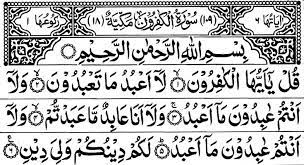 اٰيَاتُهَا ٦ (١٠٩) سُوْرَةُ الْكٰفِرُوْنَ مَكِّيَّةٌ (١٨) رُكُوْعُهَا ١
بِسْمِ اللّٰهِ الرَّحْمٰنِ الرَّحِيْمِ
قُلْ يٰۤاَيُّهَا الْكٰفِرُوْنَ ۙ﴿١﴾ لَاۤ اَعْبُدُ مَا تَعْبُدُوْنَ ۙ﴿٢﴾ وَلَاۤ
اَنْتُمْ عٰبِدُوْنَ مَاۤ اَعْبُدُ ۚ﴿٣﴾ وَلَاۤ اَنَا عَابِدٌ مَّا عَبَدْتُّمْ ۙ﴿٤﴾ وَلَاۤ
اَنْتُمْ عٰبِدُوْنَ مَاۤ اَعْبُدُ ؕ﴿٥﴾ لَكُمْ دِيْنُكُمْ وَلِىَ دِيْنِ ﴿٦﴾